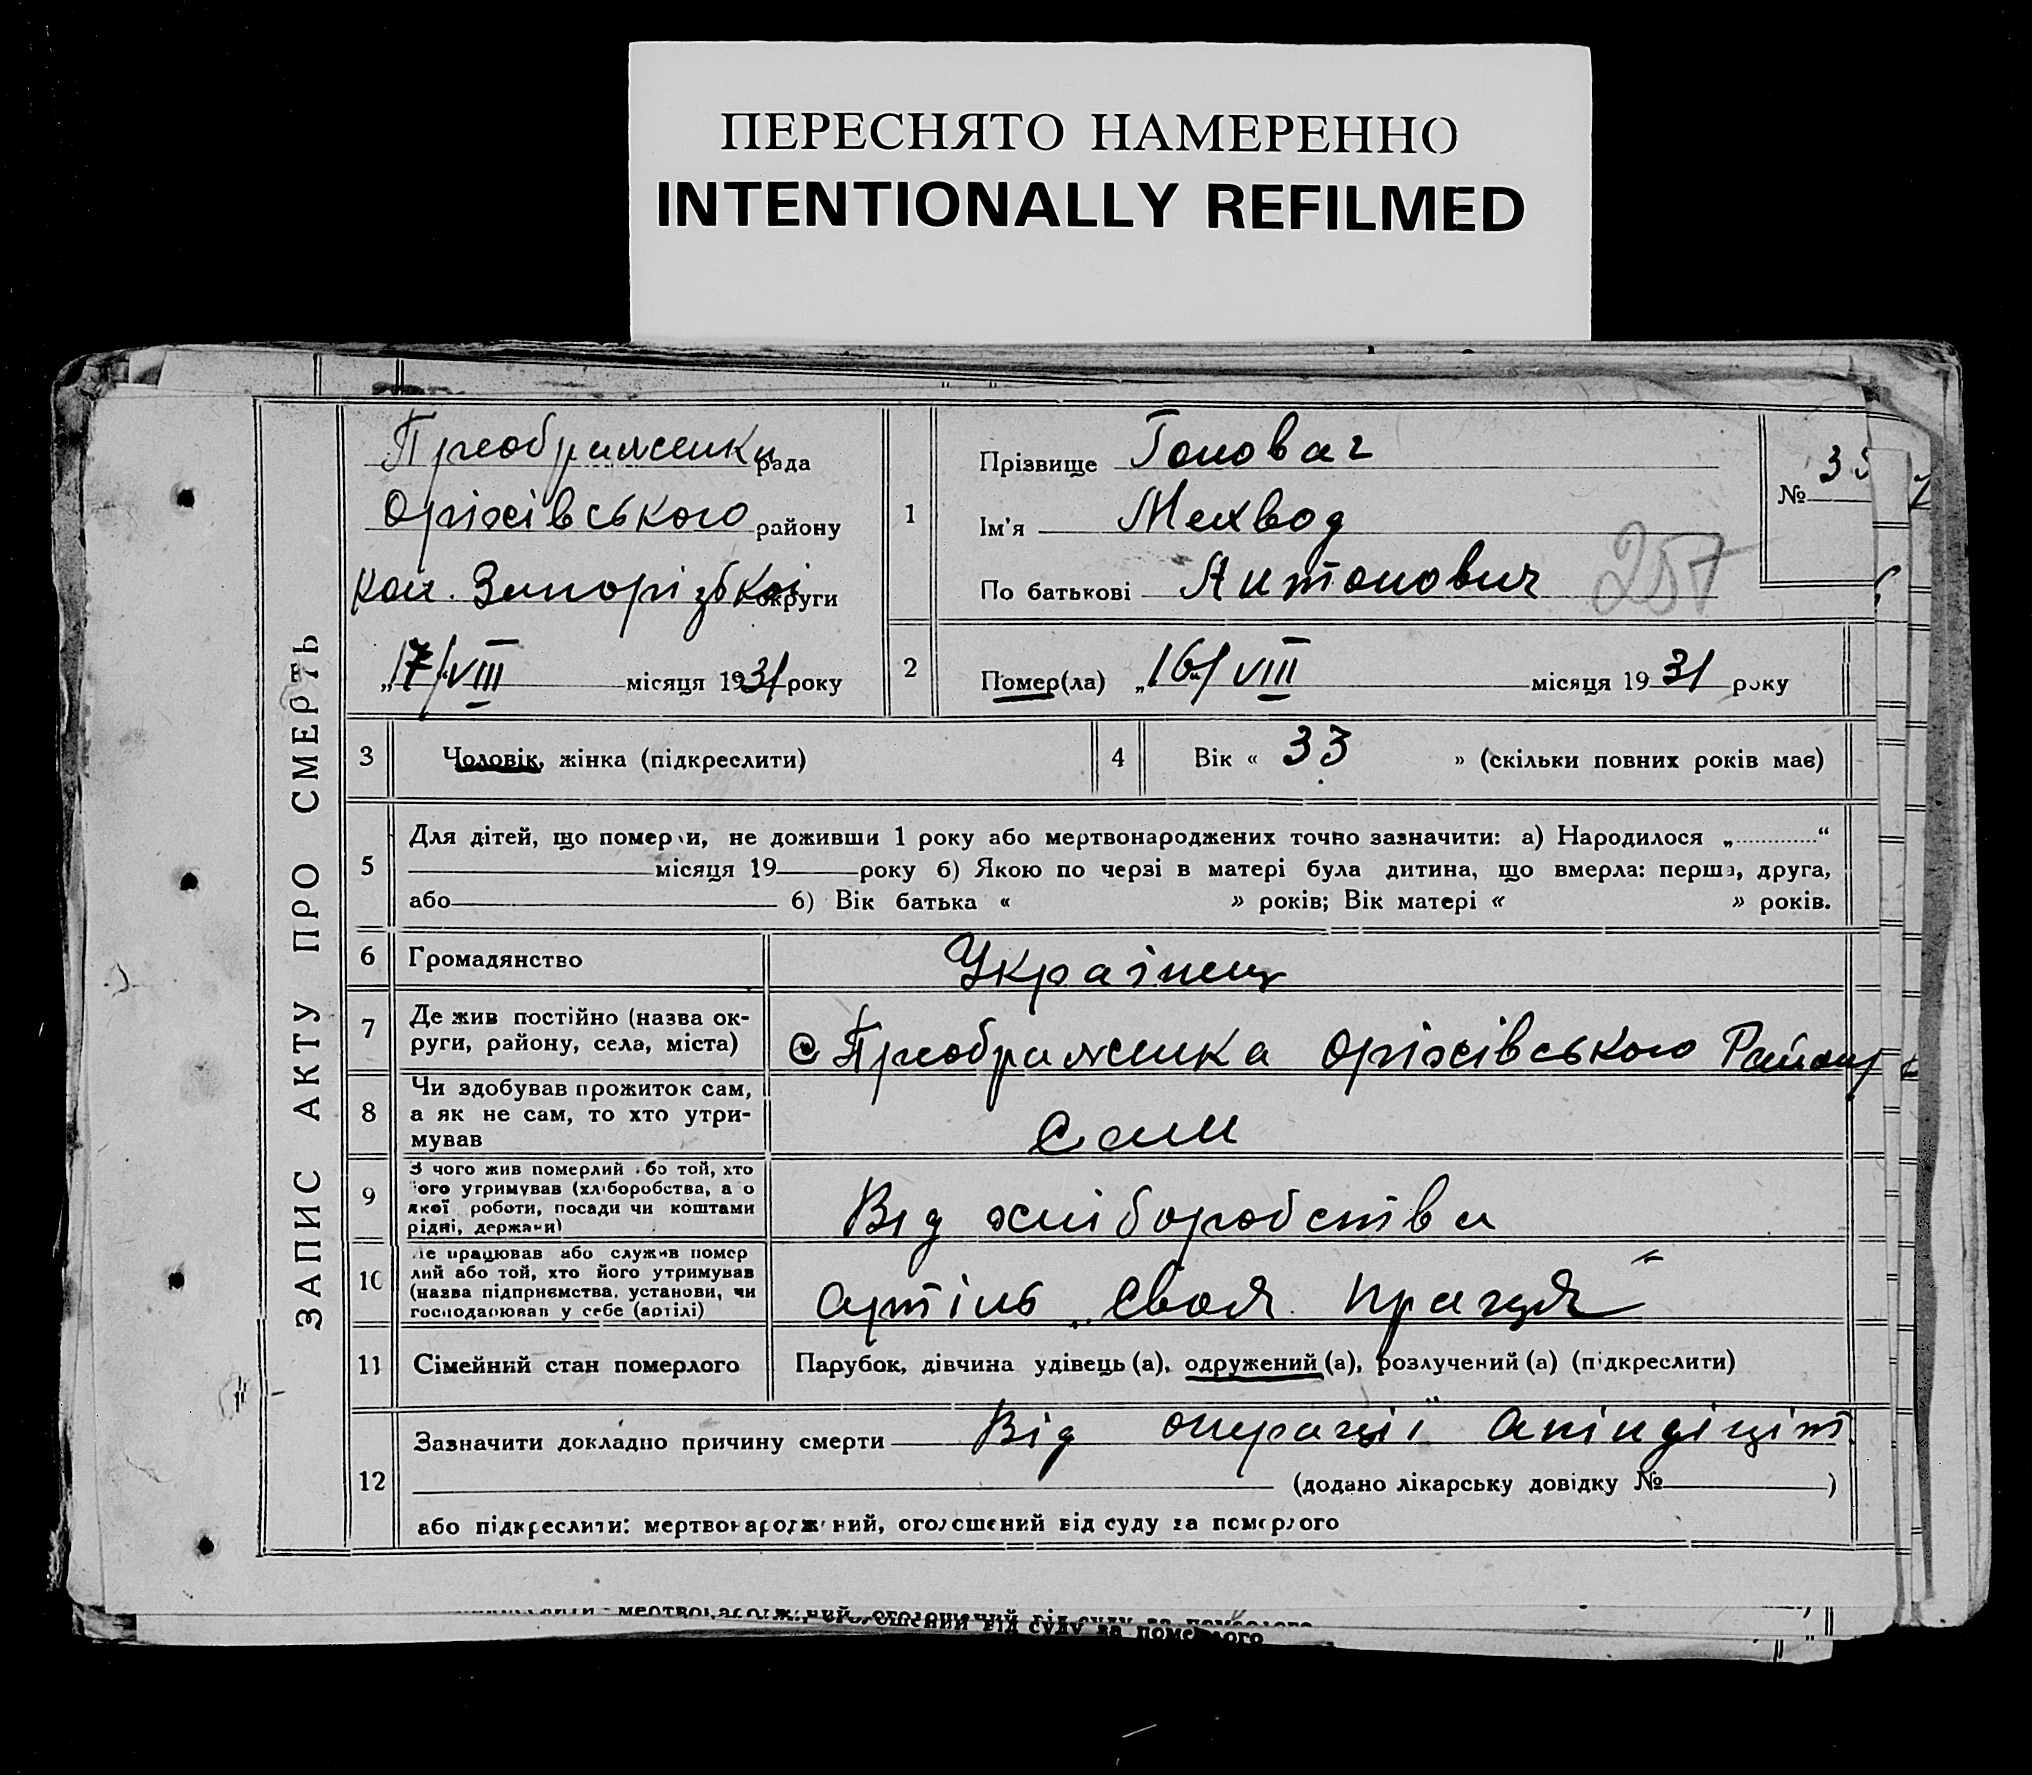 ПЕРЕСНЯТО НАМЕРЕННО
INTENTIONALLY REFILMED
ЗАПИС АКТУ ПРО СМЕРТЬ
Преображенка рада
Оріхівського району
кол. Запорізької округи
„17/VIII місяця 1931 року
1
Прізвище Головач
Ім'я
По батькові Антонович
257
№ 35
2
Помер(ла) „16/VIII місяця 1931 року
3 Чоловік, жінка (підкреслити)
4 Вік « 33 » (скільки повних років має)
5 Для дітей, що померли, не доживши 1 року або мертвонароджених точно зазначити: а) Народилося „ “
місяця 19 року б) Якою по черзі в матері була дитина, що вмерла: перша, друга,
або б) Вік батька « » років; Вік матері « » років.
6 Громадянство Українец
7 Де жив постійно (назва ок-
руги, району, села, міста) с Преображенка Оріхівського Району
8 Чи здобував прожиток сам,
а як не сам, то хто утри-
мував Сам
9 З чого жив померлий або той, хто
його утримував (хліборобства, або
якої роботи, посади чи коштами
рідні, держави) Від хліборобства
10 Де працював або служив помер
лий або той, хто його утримував
(назва підприємства, установи, чи
господарював у себе (артілі) Артіль „Своя праця“
11 Сімейний стан померлого Парубок, дівчина удівець (а), одружений (а), розлучений (а) (підкреслити)
12 Зазначити докладно причину смерти Від операції апіндіціт.
(додано лікарську довідку № )
або підкреслити: мертвонароджений, оголошений від суду за померлого
мертвонароджений, оголошений від суду за померлого
оголошений від суду за померлого